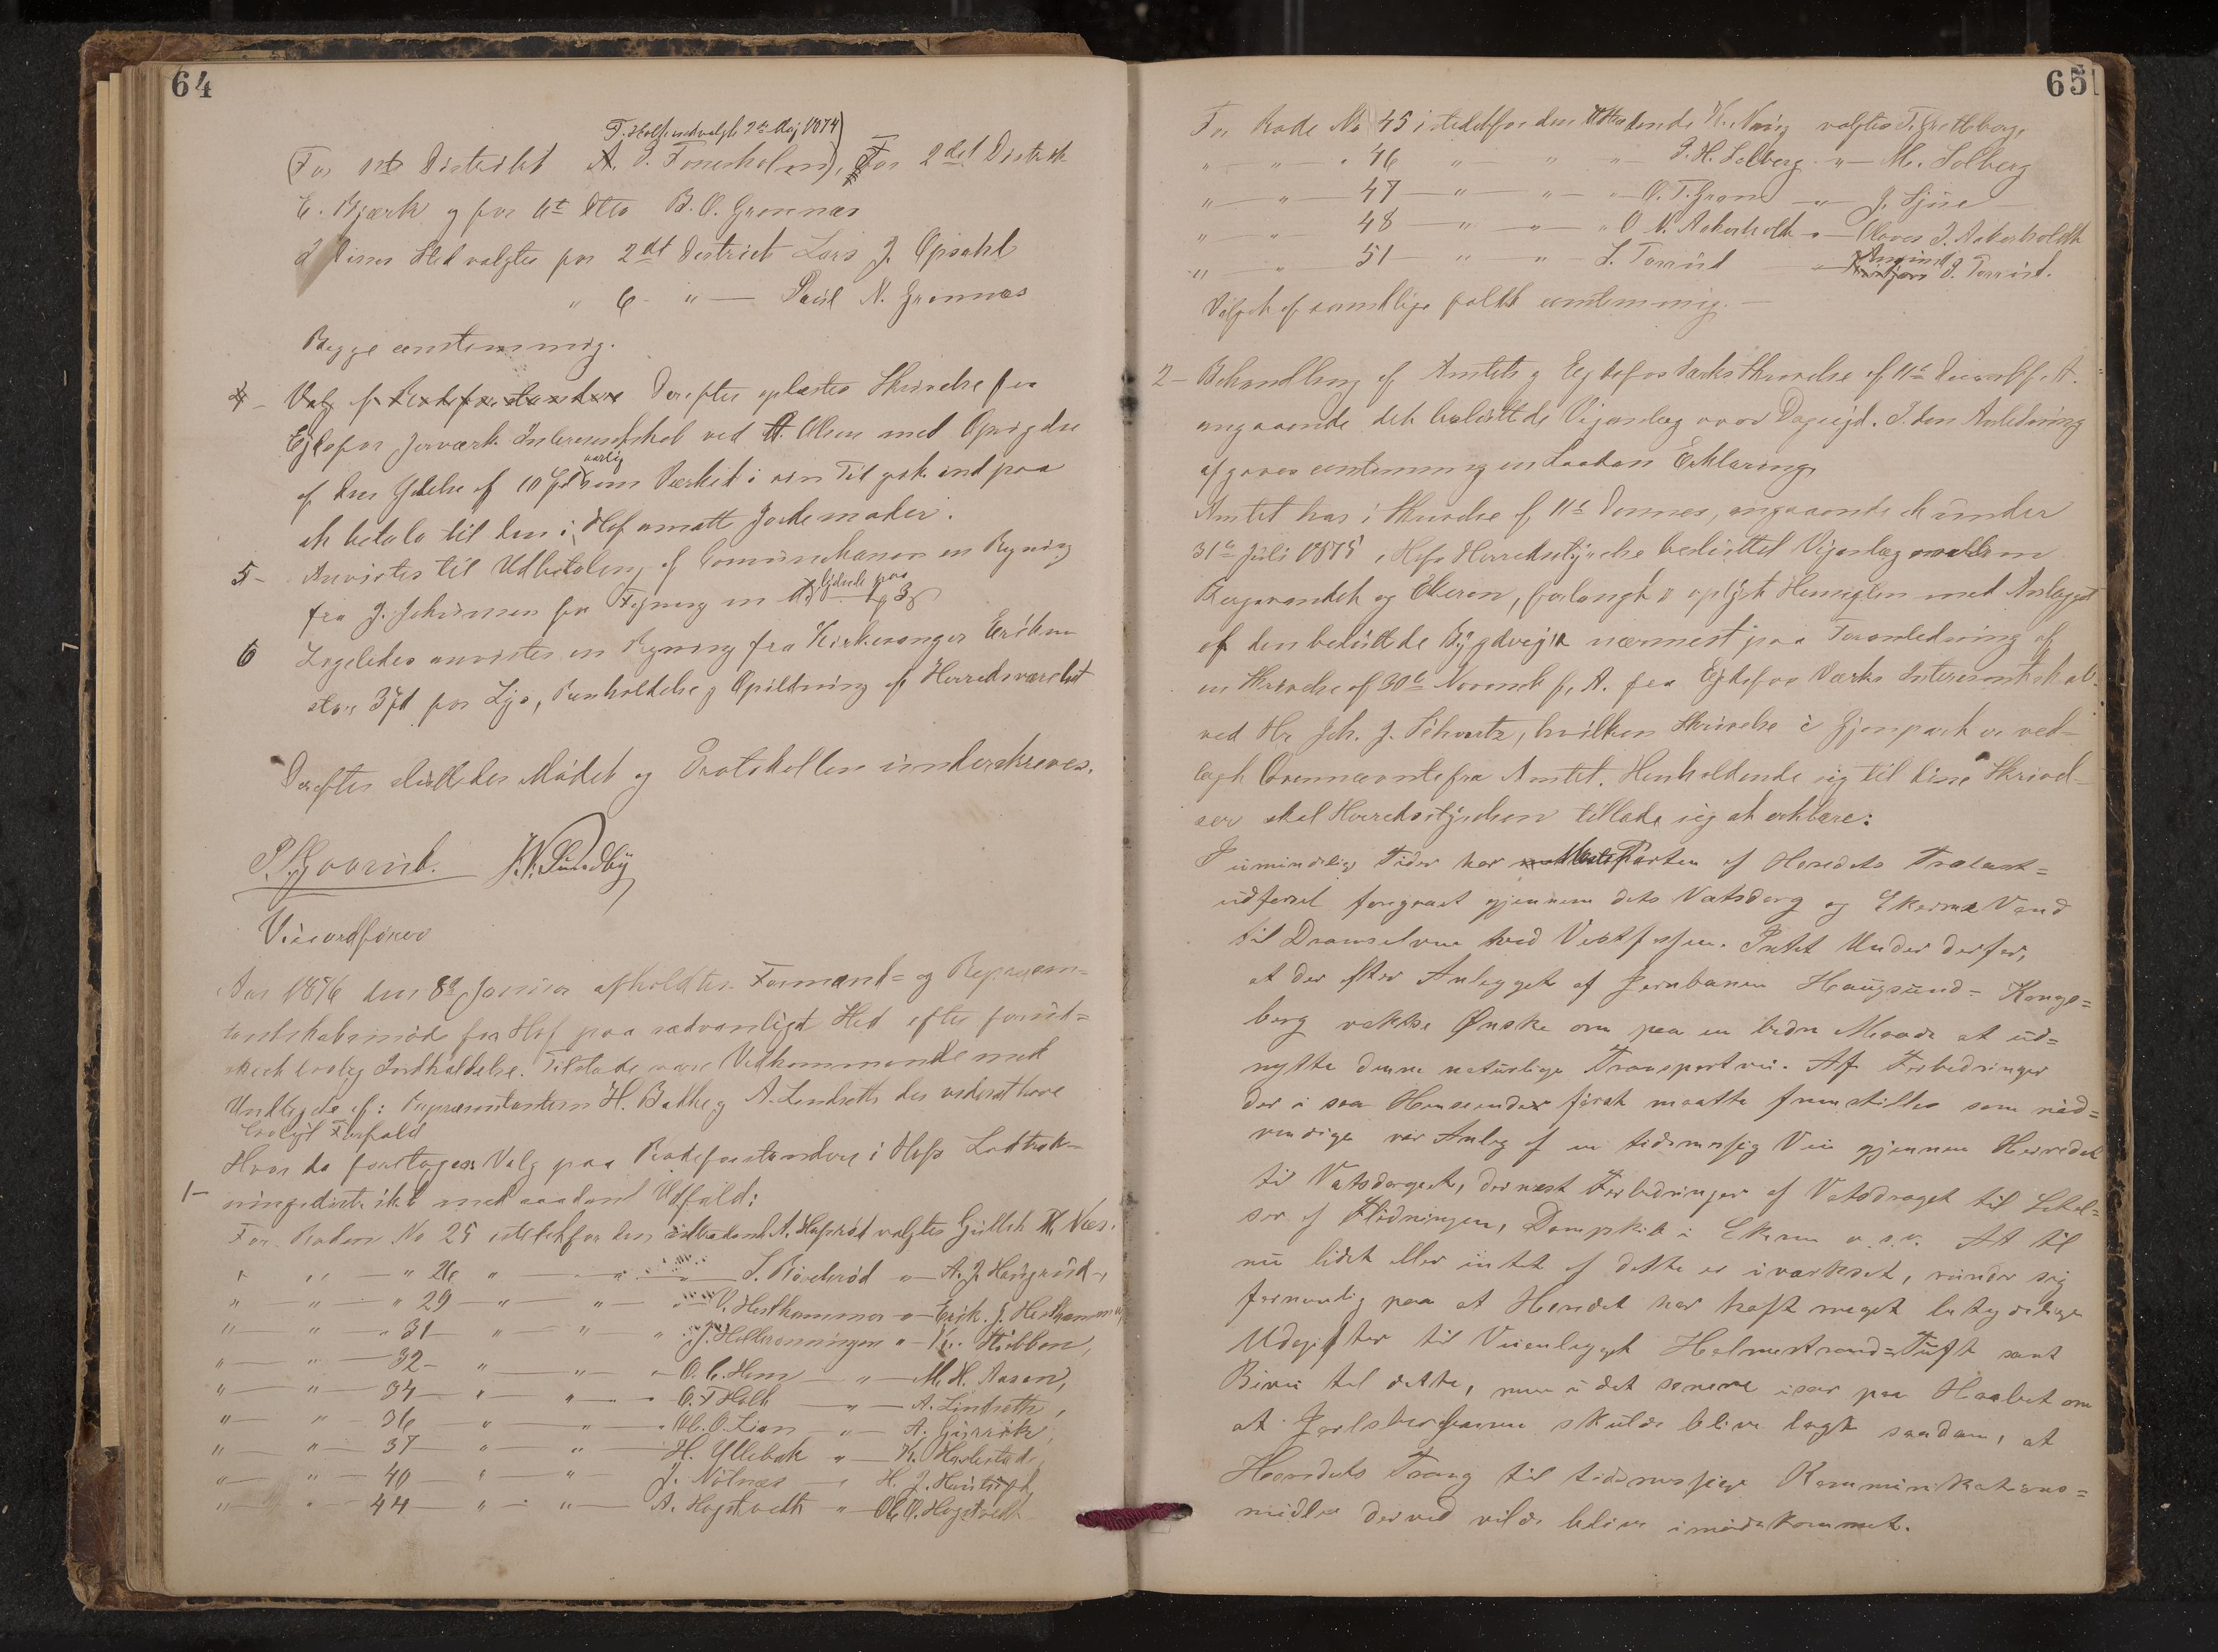 64
T. Hols. indvalgt 2de Maj 1874)
(For 1ste Distrikt A. T. Fonerholen), For 2det Distrikt
E. Bjærk og for 6te Dtto B. O. Grønnæs
I disses Sted valgtes for 2det District Lars J. Opsahl
" 6 " — Paul N. Grønnæs
Begge eenstemmig.
4 - Valg af Rodeforstandere Derefter oplæstes Skrivelse fra
Ejdsfos Jernværk Interessentskab ved A. Olsen med Opsigelse
af den Ydelse af 10 Spd aarlig som Værket i sin Tid gik ind paa
at betale til den i Hof ansatte Jordemoder.
5 - Anvistes til Udbetaling af Communekassen en Regning
fra J. Johannesen for lydende paa
6 Ligeledes anvistes en Regning fra Kirkesanger Eriksen
stor 3 Spd for Lys, Renholdelse og Opildning af Herredsværelset
Derefter sluttedes Mødet og Protokollen underskreves.
P. Gaarud. J. N. Sundby
Viceordfører
Aar 1876 den 8de Januar afholdtes Formand= og Repræsen=
tantskabsmøde for Hof paa sædvanligt Sted efter forud=
skeet lovlig Indkaldelse. Tilstede vare Vedkommende med
Undtagelse af: Repræsentanterne H. Bakke og A. Lindseth der uvidst have
lovligt Forfald
1 - Hvor da foretoges Valg paa Rodeforstandere i Hofs Lodtræk-
ningsdistrikt med saadant Udfald:
For Roden No 25 istedetfor den udtrædende A. Haprød valgtes Gullik H. Næs.
" " — " 26 " — " — S. Røveherød " — A. J. Haugrud,
" — " — " 29 — " — " — " — V. Hesthammer " — Erik J. Hesthammer,
" " — " 31 — " — " " J. Helleranningen " — K. Stubben,
" — " — 32 - " — " — " O. C. Hem — " — M. H. Aasen,
" — " — 34 — " — " — " O. T. Holt — " — A. Lindseth,
" — " — 36 — " — " — " Ole O. Lian — " — A. Gjersøe,
" — " — 37 — " — " — H. Yllebæk " — K. Haslestad,
" — " — 40 — " — " J. Nølnæs — " H. J.
" — " — 44 — " — " — A. Hogstvedt " Ole A. Hogstvedt
65
For Rode No 45 istedetfor den udtrædende K. Næss valgtes T. Gretteberg,
" — " — " 46 " — " — " P. H. Solberg " — M. Solberg
" — " — 47 — " — " — " O. T. Grønd — " — J. Ljue —
" — " — 48 — " — " — " O N. Aakerholdt " — Olaves J. Aakerholdt
" — " — 51 — " " — S. Torrud — " — Anund J. Torrud.
Valget af samtlige faldt eenstemmig. —
2 - Behandling af Amtets og Ejdsfos Værks Skrivelse af 11te Decembr f. A.
angaaende det besluttede Vejanlæg over Dagsejd. I den Anledning
afgaves eenstemmig en saadan Erklæring,
Amtet har i Skrivelse af 11te Dennes, angaaende et under
31te Juli 1875 i Hofs Herredsstyrelse besluttet Vejanlæg mellem
Bergsvandet og Ekeren, forlangt oplyst Hensigten med Anlægget
af den besluttede Bygdevej nærmest paa Foranledning af
en Skrivelse af 30te Novemb f. A. fra Ejdsfos Værks Interessentskab
ved Hr Joh. J. Schwartz, hvilken Skrivelse i Gjenpart er ved=
lagt Ovennævnte fra Amtet. Henholdende sig til disse Skrivel=
ser skal Herredsstyrelsen tillade sig at erklære:
I umindelige Tider har største Parten af Heredets Trælast=
udførsel foregaaet gjennem dets Vatsdrag og Ekerns Vand
til Dramselven ved Vestfossen. Intet Under derfor,
at der efter Anlægget af Jernbanen Haugsund= Kongs=
berg vaktes Ønske om paa en bedre Maade at ud=
nytte denne naturlige Transportvei. Af Forbedringer
der i saa Henseender først maatte fremstilles som nød=
vendige var Anlæg af en tidsmæssig Vei gjennem Herredet
til Vatsdraget, dernæst Forbedringer af Vatsdraget til Lettel=
ser af Flødningen, Dampskib i Ekern o. s. v. At til
nu lidet eller intet af dette er iværksat, runder sig
fornemlig paa at Heredet har haft meget betydelige
Udgifter til Veianlægget Holmestrand=Tuft samt
Bivei til dette, men i det senere især paa Haabet om
at Jarlsbergbanen skulde blive lagt saadan, at
Heredets Trang til tidsmæssige Kommunikations=
midler derved vilde blive imødekommet.